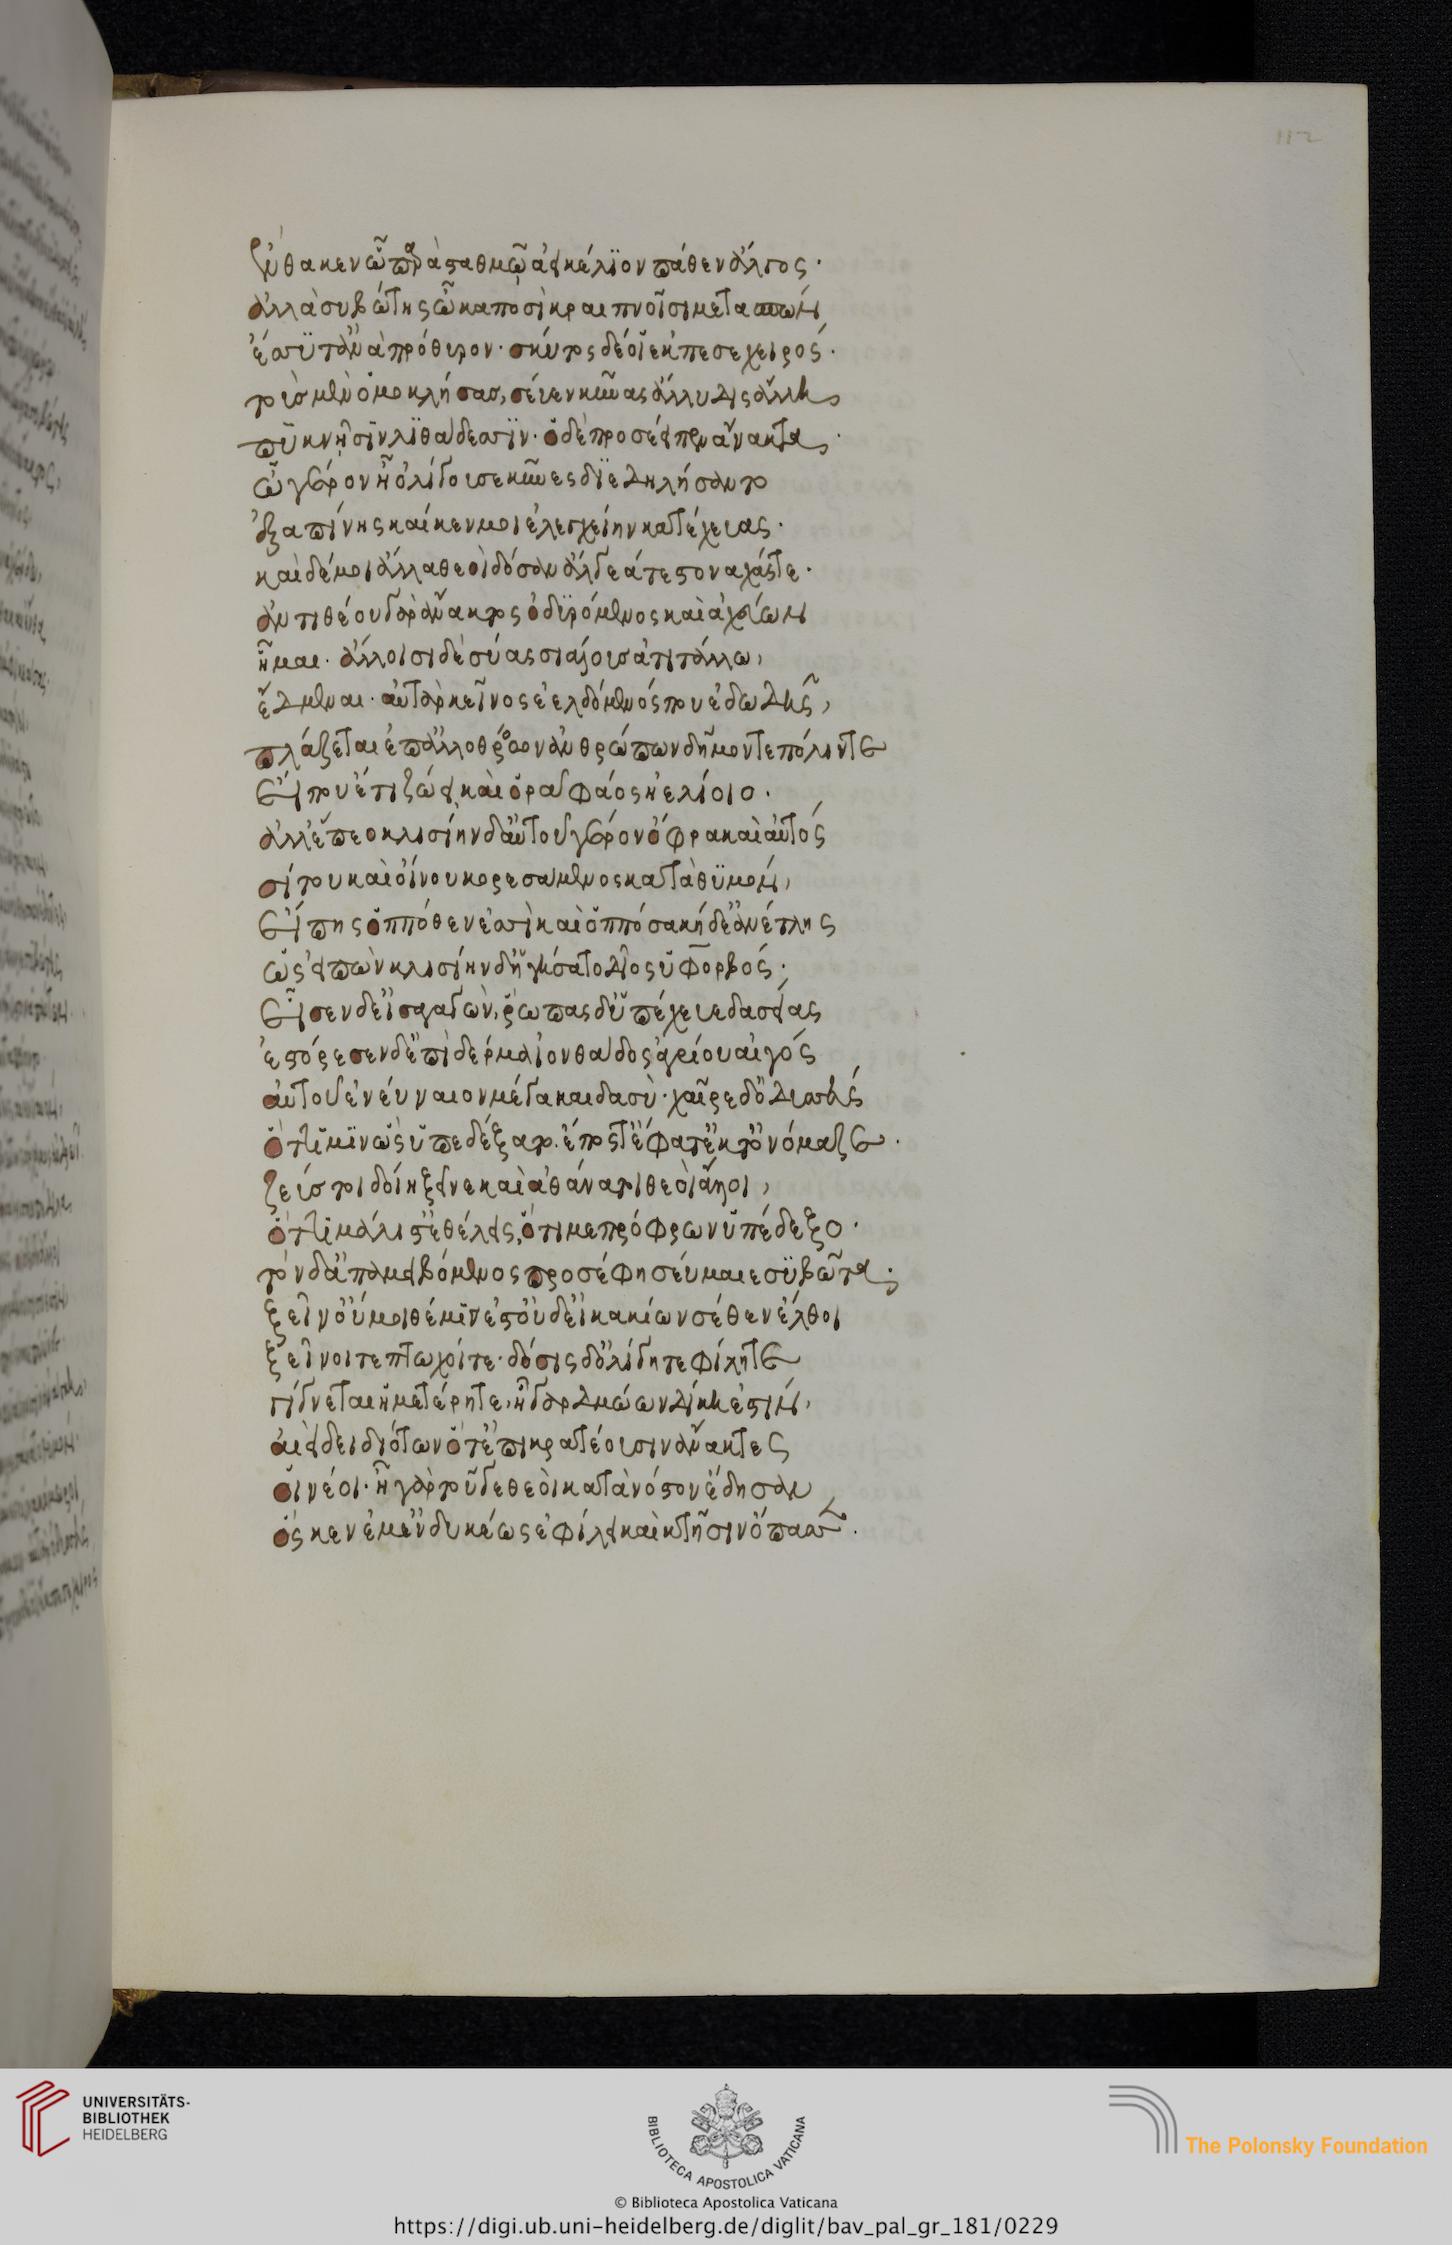 ἔνθά κεν ᾧ παρὰ σταθμῷ ἀεικέλιον πάθεν ἄλγος·
ἀλλὰ συβώτης ὦκα ποσὶ κραιπνοῖσι μετασπών
ἔσσυτ' ἀνὰ πρόθυρον· σκύτος δέ οἱ ἔκπεσε χειρός·
τοὺς μὲν ὁμοκλήσας, σεῦεν κύνας ἄλλυδις ἄλλη,
πυκνῇσιν λιθάδεσσιν· ὁ δὲ προσέειπεν ἄνακτα·
ὦ γέρον ἦ ὀλίγου σε κύνες διεδηλήσαντο
ἐξαπίνης καί κεν μοι ἐλεγχείην κατέχευας·
καὶ δέ μοι ἄλλα θεοὶ δόσαν ἄλγεά τε στοναχάς τε·
ἀντιθέου γὰρ ἄνακτος ὀδυρόμενος καὶ ἀχεύων
ἧμαι· ἄλλοισι δὲ σύας σιάλους ἀτιτάλλω,
ἔδμεναι· αὐτὰρ κεῖνος ἐελδόμενός που ἐδωδῆς,
πλάζεται ἐπ' ἀλλοθρόων ἀνθρώπων δῆμόν τε πόλιν τε
εἴ που ἔτι ζώει καὶ ὁρᾷ φάος ἠελίοιο·
ἀλλ' ἕπεο κλισίην δ' αὐτοῦ γέρον ὄφρα καὶ αὐτός
σίτου καὶ οἴνου κορεσάμενος κατὰ θυμόν,
εἴπῃς ὁππόθεν ἐσσὶ καὶ ὁππόσα κήδε' ἀνέτλης
ὣς εἰπὼν κλισίην δ' ἡγήσατο δῖος ὑφορβός·
εἷσεν δ' εἰσαγαγών, ῥῶπας δ' ὑπέχευε δασείας
ἐστόρεσεν δ' ἐπὶ δέρμα ἰονθάδος ἀγρίου αἰγός
αὐτοῦ ἐνεύναιον μέγα καὶ δασύ· χαῖρε δ' ὀδυσσεύς
ὅττι μιν ὣς ὑπεδέξατο. ἔπος τ' ἔφατ' ἔκ τ' ὀνόμαζε·
ζεύς τοι δοίη ξεῖνε καὶ ἀθάνατοι θεοὶ ἄλλοι,
ὅττι μάλιστ' ἐθέλεις, ὅτι με πρόφρων ὑπέδεξο·
τὸν δ' ἀπαμειβόμενος προσέφης εὔμαιε συβῶτα·
ξεῖν' οὔ μοι θέμις ἔστ' οὐδ' εἰ κακίων σέθεν ἔλθοι
ξεῖνοί τε πτωχοί τε· δόσις δ' ὀλίγη τε φίλη τε
γίγνεται ἡμετέρη τε, ἡ γὰρ δμώων δίκη ἐστίν,
αἰεὶ δειδιότων ὅτ' ἐπικρατέουσιν ἄνακτες
οἱ νέοι· ἦ γὰρ τοῦ γε θεοὶ κατὰ νόστον ἔδησαν
ὅς κεν ἔμ' ἐνδυκέως ἐφίλει καὶ κτῆσιν ὄπασσε.